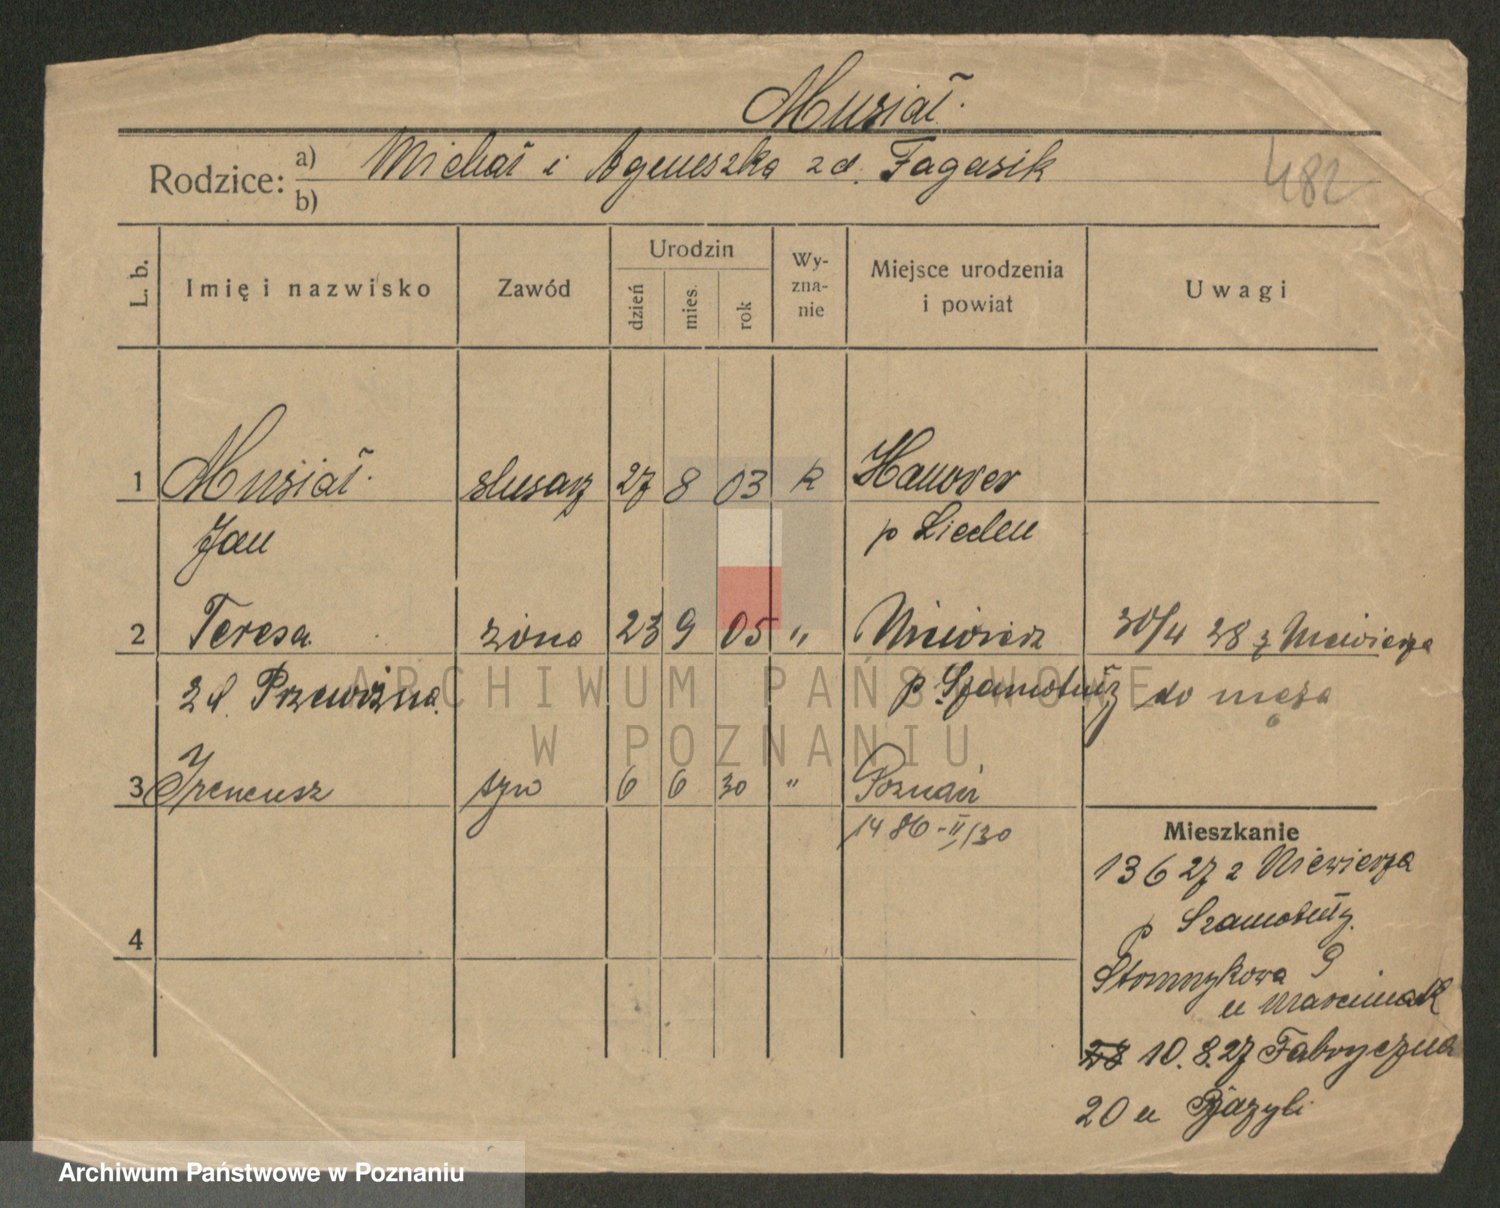 Musiał.
Rodzice: a) Michał i Agnieszka zd. Fagasik
b)
482
L. b. Imię i nazwisko Zawód Urodzin dzień mies. rok Wyznanie Miejsce urodzenia i powiat Uwagi
1 Musiał. ślusarz 27 8 03 k Hanover
Jan p Lieden
2 Teresa żona 23 9 05 " Niewierz 30/4 28 z Niewierza
zd. Przewoźna p. Szamotuły do męża
3 Ireneusz syn 6 6 30 " Poznań
1486-II/30
Mieszkanie
13 6 27 z Niewierza
p Szamotuły
4
9
u Marciniak
10.8.27 Fabryczna
20 u Bazyli
ARCHIWUM PAŃSTWOWE
W POZNANIU
Archiwum Państwowe w Poznaniu